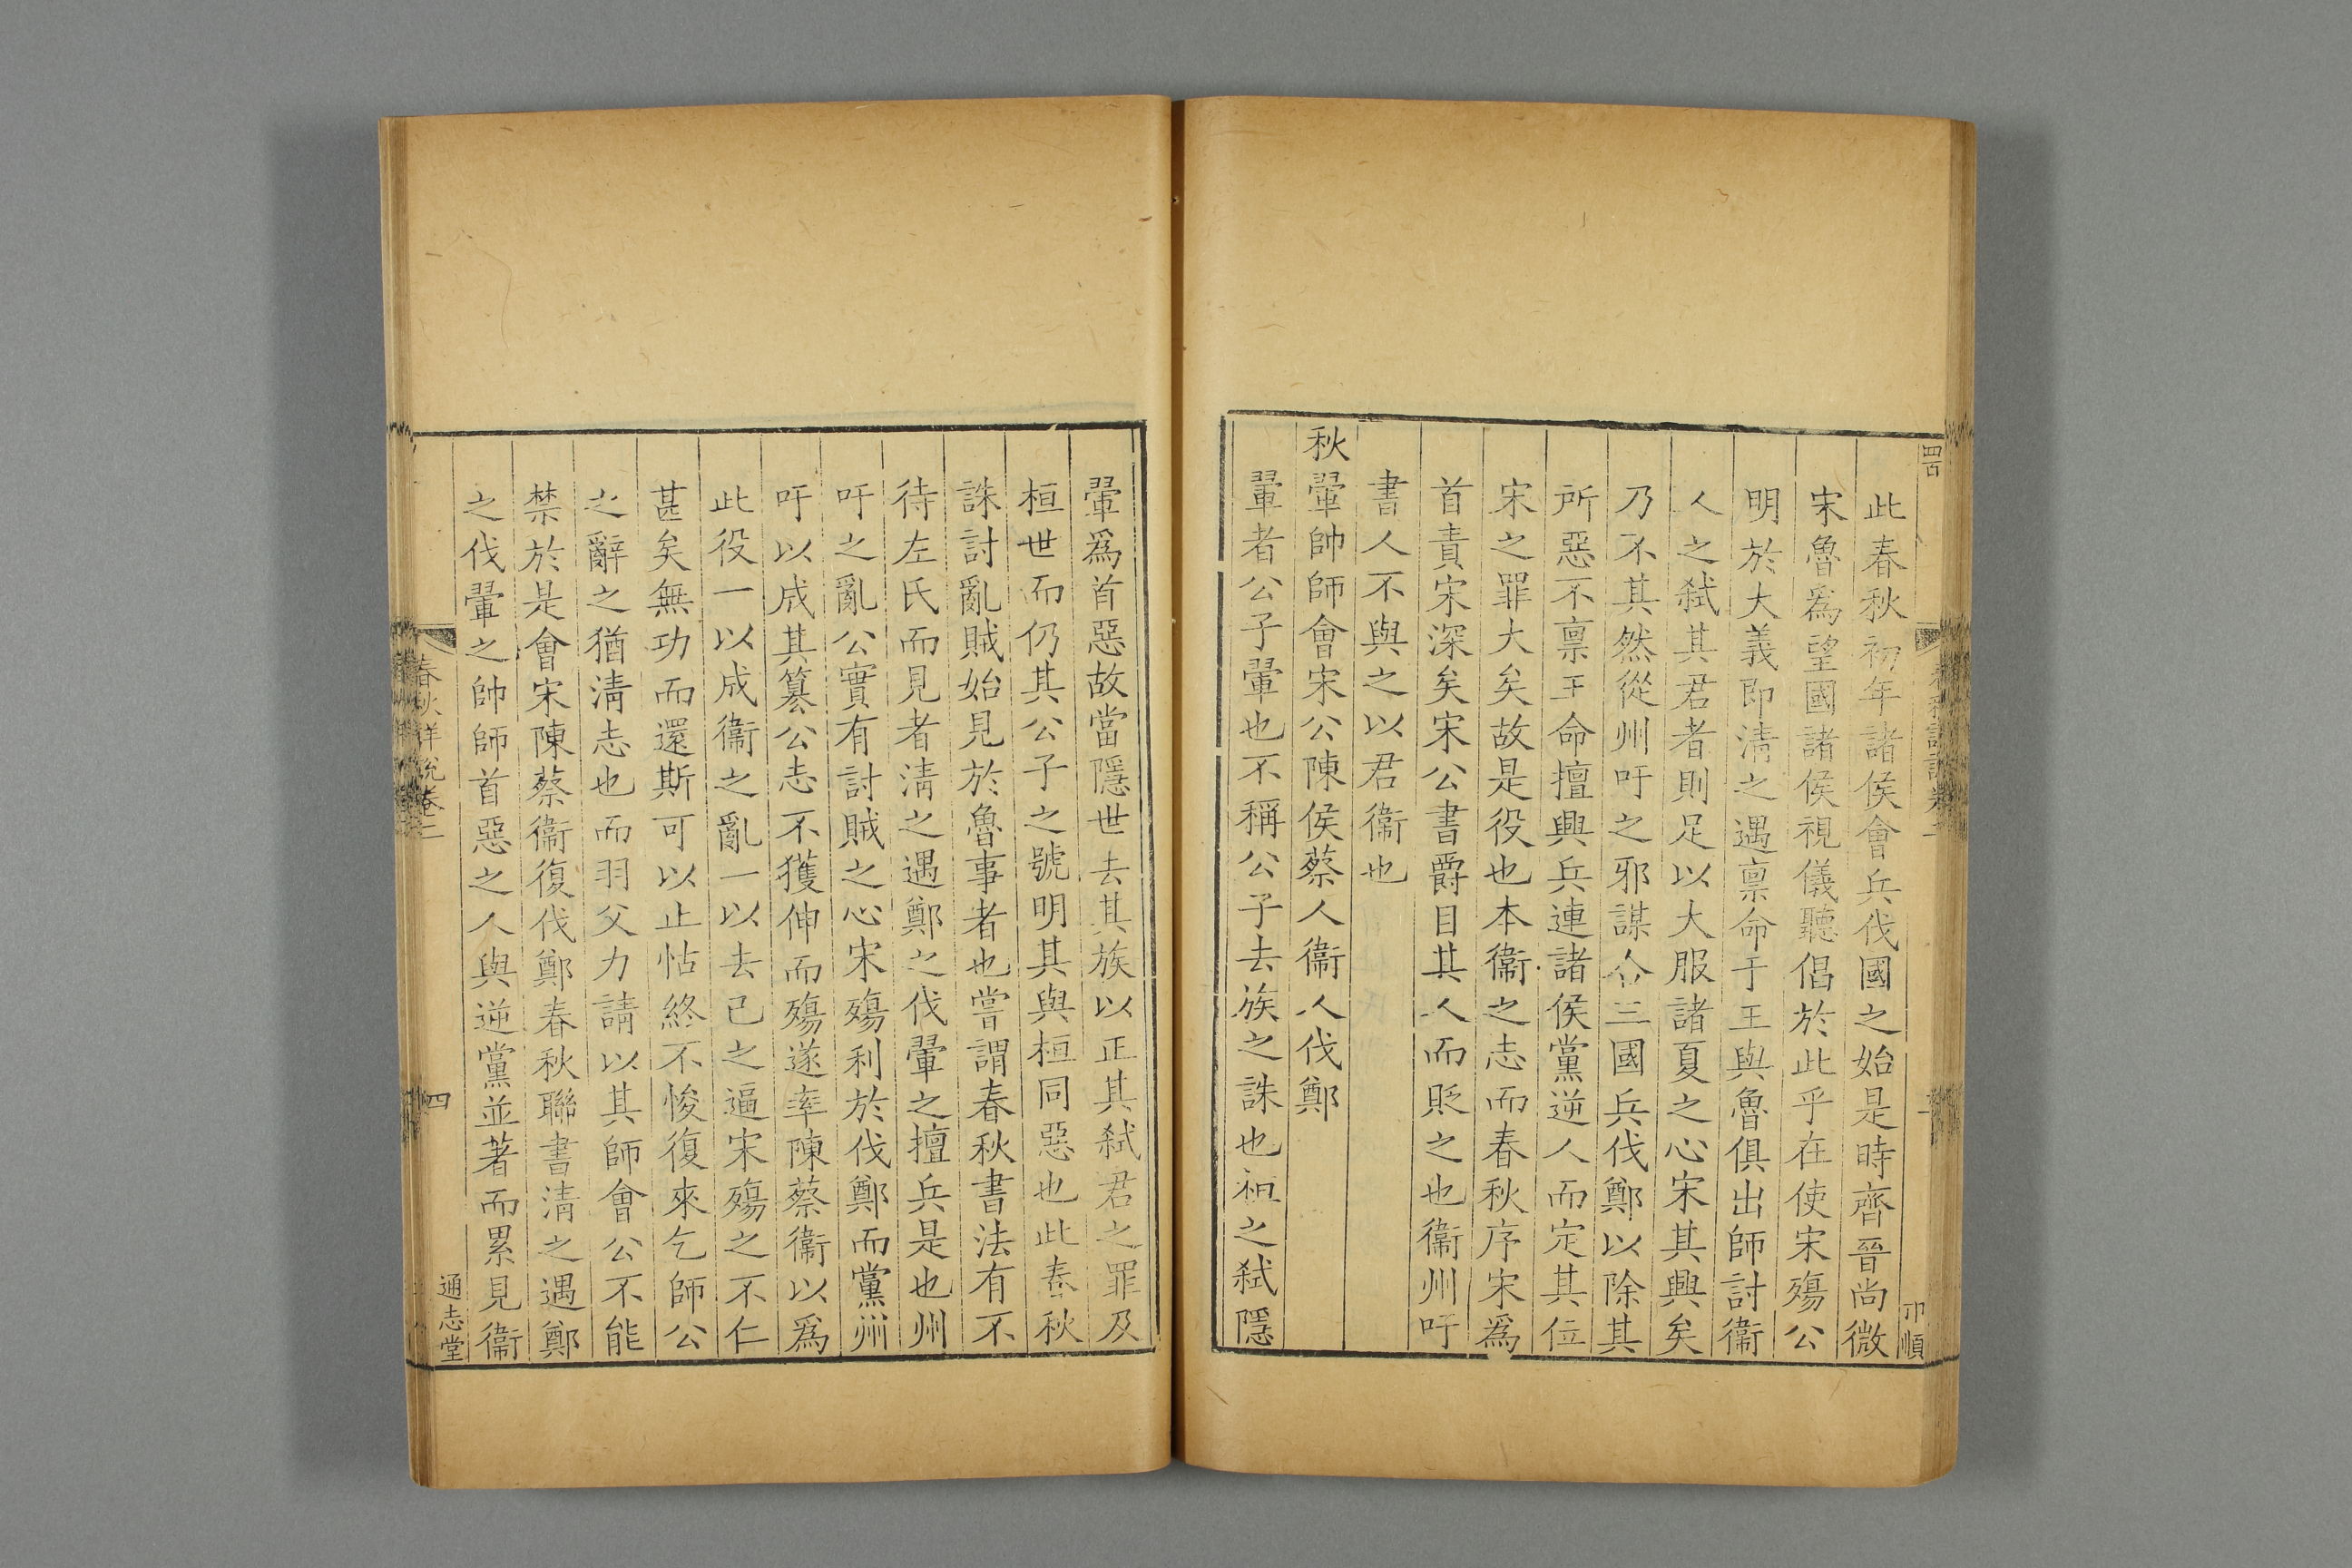 此春秋初年諸侯會兵伐國之始是時齊晉尚微
宋魯爲望國諸侯視儀聽倡於此乎在使宋殤公
明於大義即淸之遇禀命于王與魯俱出師討衞
人之弑其君者則足以大服諸夏之心宋其興矣
乃不其然從州吁之邪謀合三國兵伐鄭以除其
所惡不禀王命擅興兵連諸侯黨逆人而定其位
宋之罪大矣故是役也本衞之志而春秋序宋爲
首責宋深矣宋公書爵目其人而貶之也衞州吁
書人不與之以君衞也
秋翬帥師會宋公陳侯蔡人衞人伐鄭
翬者公子翬也不稱公子去族之誅也祖之弑隱
翬爲首惡故當隱世去其族以正其弑君之罪及
桓世而仍其公子之號明其與桓同惡也此春秋
誅討亂賊始見於魯事者也嘗謂春秋書法有不
待左氏而見者淸之遇鄭之伐翬之擅兵是也州
吁之亂公實有討賊之心宋殤利於伐鄭而黨州
吁以成其簒公志不獲伸而殤遂率陳蔡衞以爲
此役一以成衞之亂一以去己之逼宋殤之不仁
甚矣無功而還斯可以止怗終不悛復來乞師公
之辭之猶淸志也而羽父力請以其師會公不能
禁於是會宋陳蔡衞復伐鄭春秋聯書淸之遇鄭
之伐翬之帥師首惡之人與逆黨並著而累見衞
春秋詳說卷二
四
通志堂